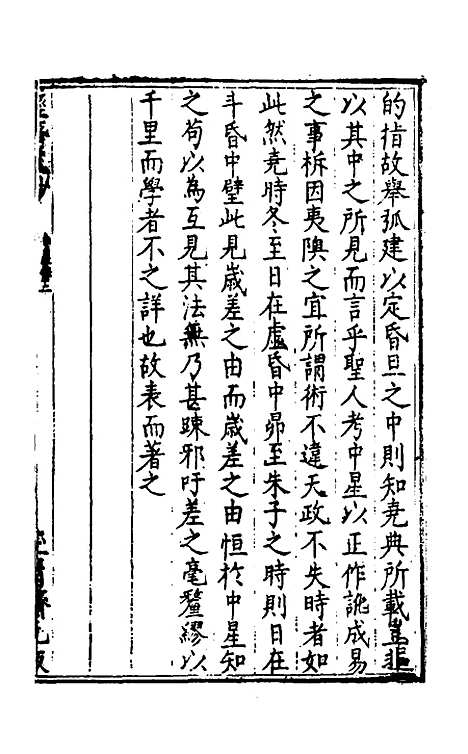 的指故舉孤建以定昏旦之中則知堯典所載豈非
以其中之所見而言乎聖人考中星以正作訛成易
之事析因夷隩之宜所謂術不違天政不失時者如
此然堯時冬至日在虛昏中昴至朱子之時則日在
斗昏中壁此見歲差之由而歲差之由恒於中星知
之苟以為互見其法無乃甚踈邪吁差之毫釐繆以
千里而學者不之詳也故表而著之